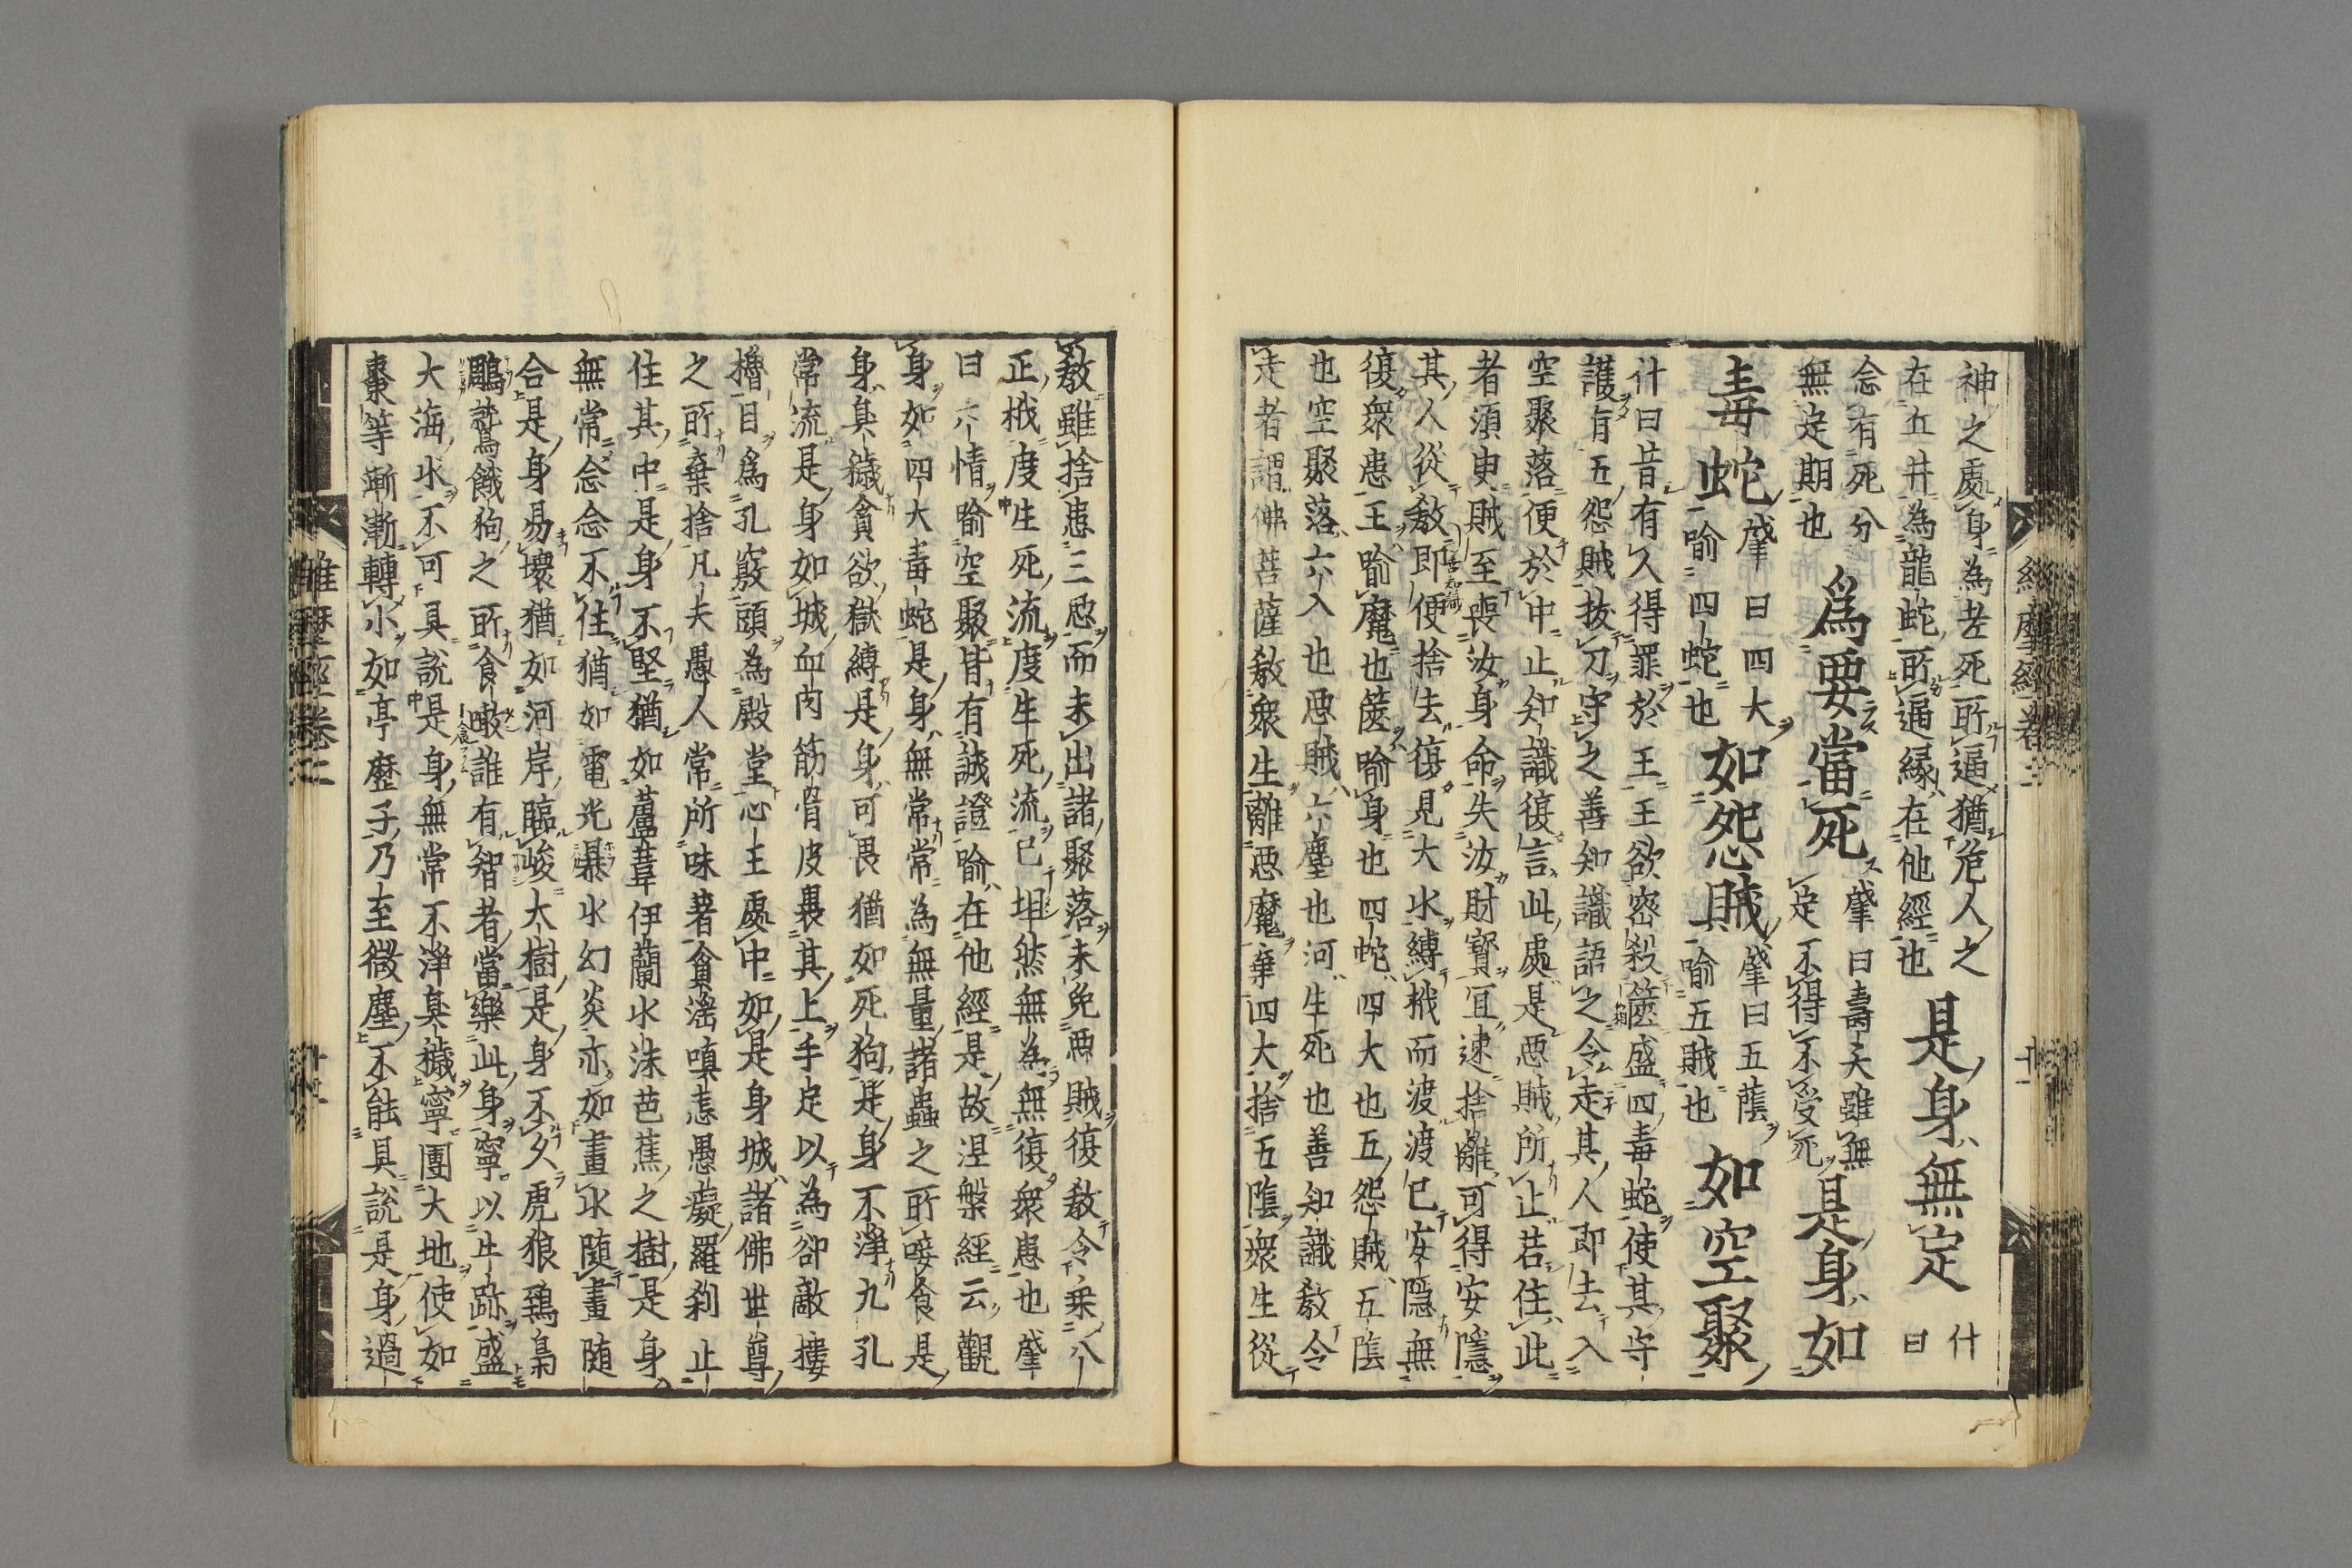 神之處身為老死所逼猶危人之
在丘井為龍蛇所逼緣在他經也
是身無定
什
曰
念有死分
無定期也
為要當死
肇曰壽夭雖無
定不得不受死
是身如
毒蛇
肇曰四大
喻四蛇也
如怨賊
肇曰五蔭
喻五賊也
如空聚
什曰昔有人得罪於王王欲密殺篋盛四毒蛇使其守
護有五怨賊拔刀守之善知識語之令走其人即去入
空聚落便於中止知識復言此處是惡賊所止若住此
者須臾賊至喪汝身命失汝財寶宜速捨離可得安隱
其人從教即便捨去復見大水縛栰而渡渡已安隱無
復衆患王喻魔也篋喻身也四蛇四大也五怨賊五陰
也空聚落六入也惡賊六塵也河生死也善知識教令
走者謂佛菩薩教衆生離惡魔棄四大捨五陰衆生從
教雖捨患三惡而未出諸聚落未免惡賊復教令乘八
正栰度生死流度生死流已坦然無為無復衆患也肇
曰六情喻空聚皆有誠證喻在他經是故涅槃經云觀
身如四大毒蛇是身無常常為無量諸蟲之所唼食是
身臭穢貪欲獄縛是身可畏猶如死狗是身不淨九孔
常流是身如城血肉筋骨皮裹其上手足以為卻敵樓
櫓目為孔竅頭為殿堂心王處中如是身城諸佛世尊
之所棄捨凡夫愚人常所味著貪滛嗔恚愚癡羅刹止
住其中是身不堅猶如蘆葦伊蘭水沫芭蕉之樹是身
無常念念不住猶如電光暴水幻炎亦如畫水随畫随
合是身易壞猶如河岸臨峻大樹是身不久虎狼鵄梟
鵰鷲餓狗之所食噉誰有智者當樂此身寧以牛跡盛
大海水不可具說是身無常不淨臭穢寧團大地使如
棗等漸漸轉小如亭歷子乃至微塵不能具說是身過
維摩經卷二